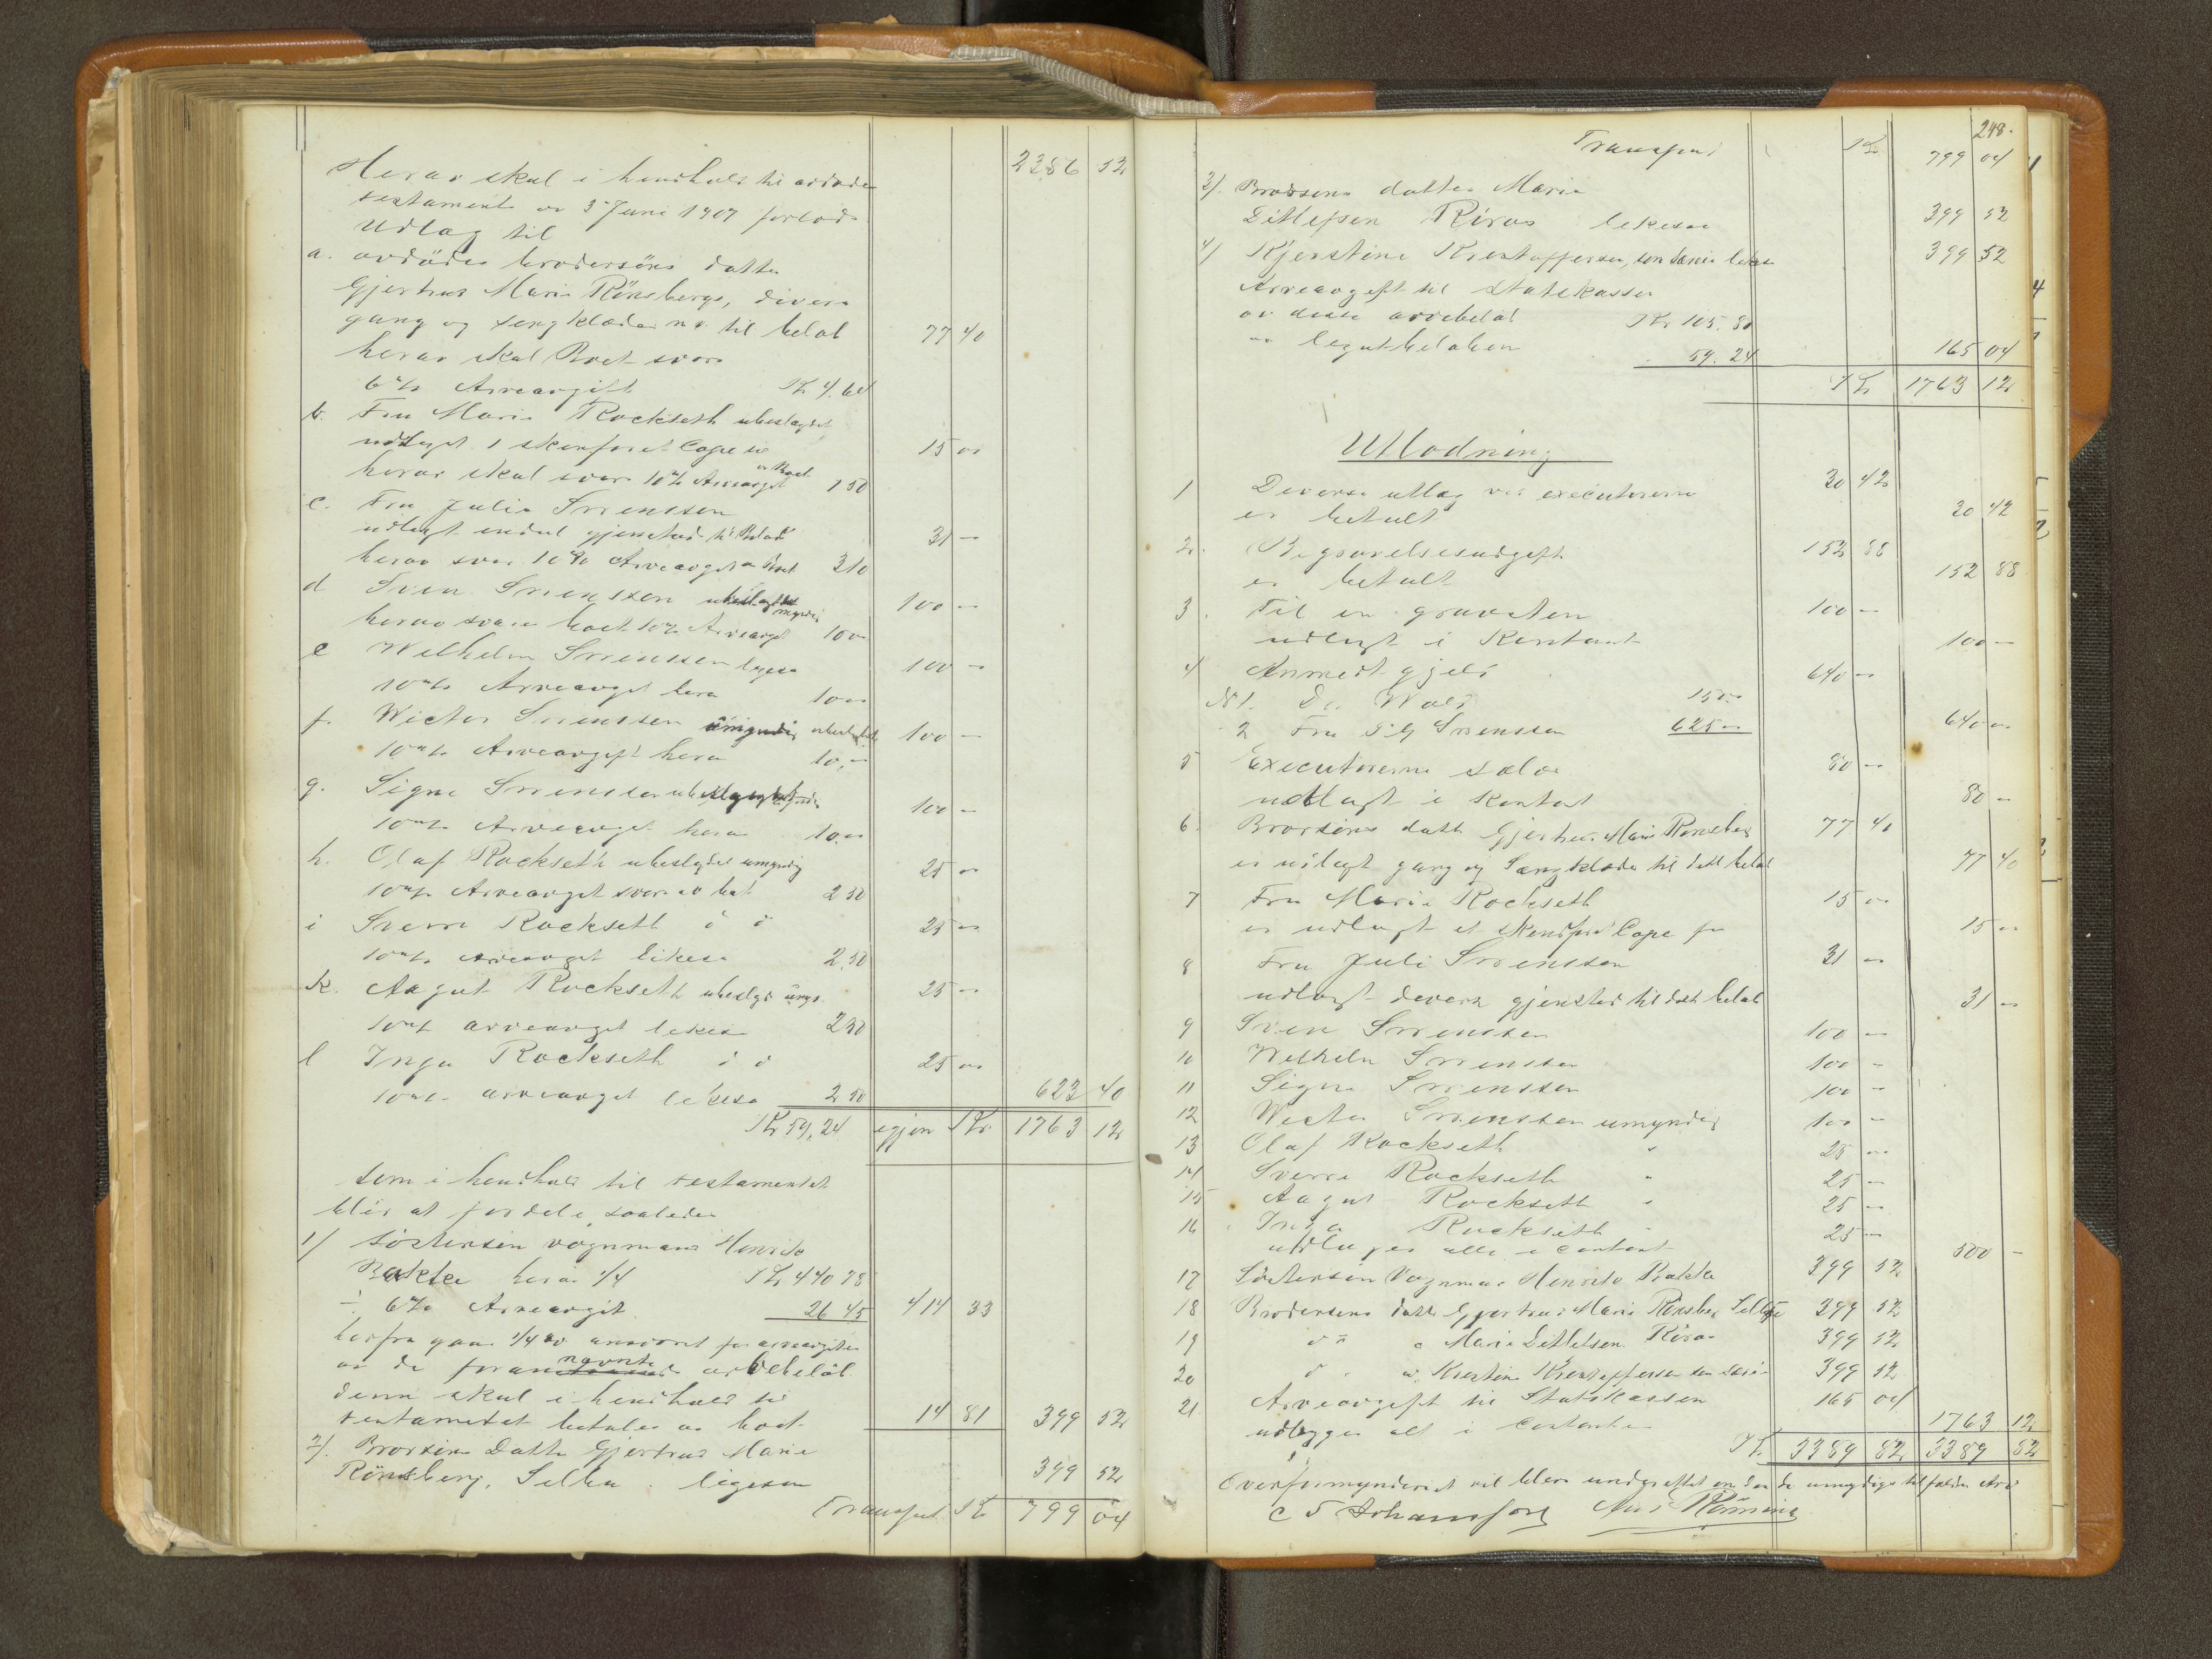 2386 52
Herav skal i henhold til avdøde
testamente av 3 Juni 1909 forlods
Udlæg til
a. avdødes brodersöns datter
Gjertrud Marie Rönsberg, divers
gang og sengklæder m v til beløb 77 40
herav skal Boet svare
6 % Arveavgift Kr 4.64
b. Fru Marie Rockseth ubeslægtet
udlagt 1 skinforet Cape til 15 00
herav skal svare 10 % Arveavgift av Boet 1 50
c. Fru Julie Sørenssen
udlagt endel gjenstand til Beløb 31 —
herav svar 10 % Arveavgift av Boet 3 10
d Sven Sørenssen ubeslagtet myndig 100 —
herav svare boet 10 % Arveavgift 10 00
e Wilhelm Sørenssen ligesa 100 —
10 % Arveavgift hera 10 00
f. Wictor Sørenssen umyndig ubeslagtet 100 —
10 % Arveavgift hera 10,—
g. Signe Sørenssen ubeslagtet 100 —
10 % Arveavgift hera 10.00
h. Olaf Rockseth ubeslagtet umyndig 25 00
10 % Arveavgift svar av boet 2 50
i Sverre Rockseth d d 25 00
10 % Arveavgift likesa 2.50
k. Aagut Rockseth ubeslgt umyn. 25 00
10 % arveavget likesa 2 50
l Inga Rockseth d d 25 00
10 % arveavget likesa 2 50 623 40
Kr 59,24 igjen Kr 1763 12
som i henhold til testamentet
blir at fordele saaledes
1/ Söstersön vognmand Henrik
Bakke herav 1/4 Kr 440 78
÷ 6 % Arveavgift 26 45 414 33
herfra gaar 1/4 av ansvaret for arveavgiften
av de forannævnte arvebeløb
denne skal i henhold til
testamentet betales av boet 14 81 399 52
2/. Brorsöns Datter Gjertrud Marie
Rönsberg, Selbu. ligesaa 399 52
Transport Kr 799 04
248.
Transport Kr 799 04
3/. Brorsøns datter Marie
Ditlefsen Röros likesaa 399 52
4/ Kjerstine Kristoffersen, likesa 399 52
Arveavgift til Statskassen
av disse arvebeløb Kr 105.80
av legatbeløben 59.24 165 04
Kr 1763 12
Utlodning
1 Diverse utlæg ved executorerne 20 42
er betalt 20 42
2. Begravelsesudgift 152 88
er betalt 152 88
3. Til en gravsten 100 —
udlagt i Kontant 100 —
4 Anmeldt gjeld 640 —
N 1. Dr. Wold 15 00
2 Fru Sørenssen 625 00 640 00
5 Executorerne salær 80 —
udlagt i Kontant 80 —
6. Brorsöns datt Gjertrud Marie Rönsberg 77 40
er udlagt gang og Sængklæder til dett beløb 77 40
7 Fru Marie Rockseth 15 00
er udlagt et skindforet Cape for 15 00
8 Fru Juli Sørenssen 31 00
udlagt diverse gjenstand til dett beløb 31 00
9 Sven Sørenssen 100 —
10 Wilhelm Sørenssen 100 —
11 Signe Sørenssen 100 —
12 Wictor Sørenssen umyndig 100 —
13 Olaf Rockseth " 25 00
14 Sverre Rockseth " 25 —
15 Aagut Rockseth " 25 —
16 Inga Rockseth " 25 —
udlægges alle i contant 500 —
17 Söstersön Vognmand Henrik Bakke 399 52
18 Brodersøns datt Gjertrud Marie Rönsberg Selbu 399 52
19 d o Marie Ditlefsen Röros 399 52
20 d Kristine Kristoffersen 399 52
21 Arveavgift til Statskassen 165 04
udlægges alt i Contanter 1763 12
Kr 3389 82 3389 82
Overformynderiet vil blive underrettet om den de umyndige tilfaldne Arv